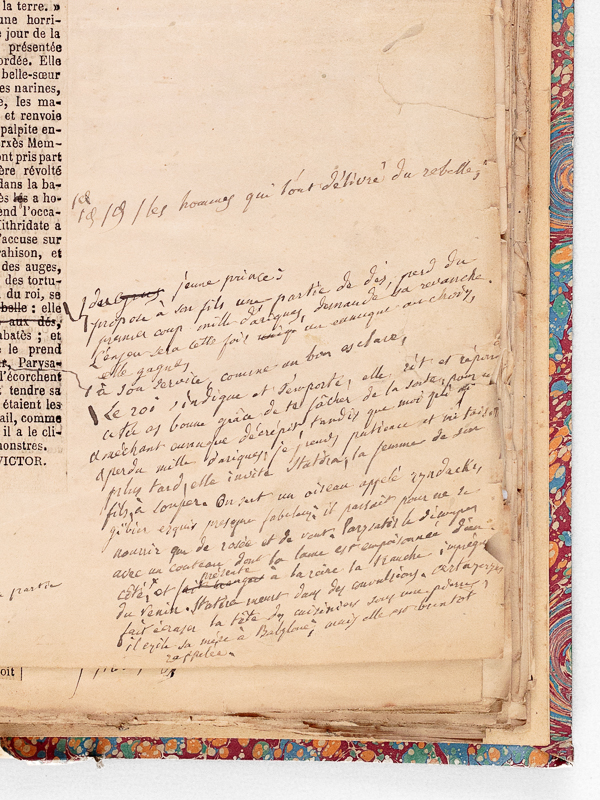 la terre. »
une horri-
e jour de la
présentée
ordée. Elle
belle-sœur
es narines,
e, les ma-
et renvoie
palpite en-
rxès Mem-
ont pris part
ère révolté
dans la ba-
ès les a ho-
end l'occa-
Mithridate a
'accuse sur
rahison, et
des auges,
des tortu-
du roi, se
belle : elle
aux dés,
abatès ; et
le prend
Parysa-
l'écorchent
tendre sa
étaient les
ail, comme
il a le cli-
monstres.
VICTOR.
les hommes qui l'ont délivré du rebelle,
jeune prince
propose à son fils une partie de dés, perd du
premier coup mille dariques, demande sa revanche.
L'enjeu sera cette fois un eunuque au choix,
elle gagne
à son service comme un bon esclave,
Le roi s'indigne et s'emporte; elle, rit et
as bonne grâce de te fâcher de la sorte, pour un
méchant eunuque décrépit tandis que moi qui ai
perdu mille dariques, je prends patience et me tais
plus tard, elle invite Statira, la femme de son
fils, à souper. On sert un oiseau appelé ryndacès,
gibier exquis presque fabuleux; il passait pour ne se
nourrir que de rosée et de vent. Parysatis le découpe
avec un couteau dont la lame est empoisonnée d'un
côté, et présente à la reine la tranche imprégnée
du venin. Statira meurt dans des convulsions. Artaxerxès
fait écraser la tête du cuisinier sous une pierre,
il exile sa mère à Babylone, mais elle est bientôt
rappelée.
partie
oit